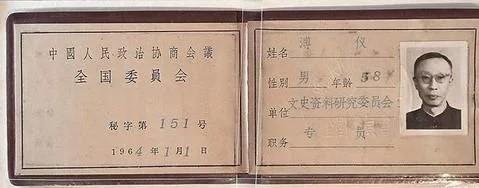 中國人民政治协商会議
全国委員会
秘字第 151 号
1964年1月1日
姓名 溥仪
性别 男 年龄 58
单位 文史資料研究委员会
职务 专员